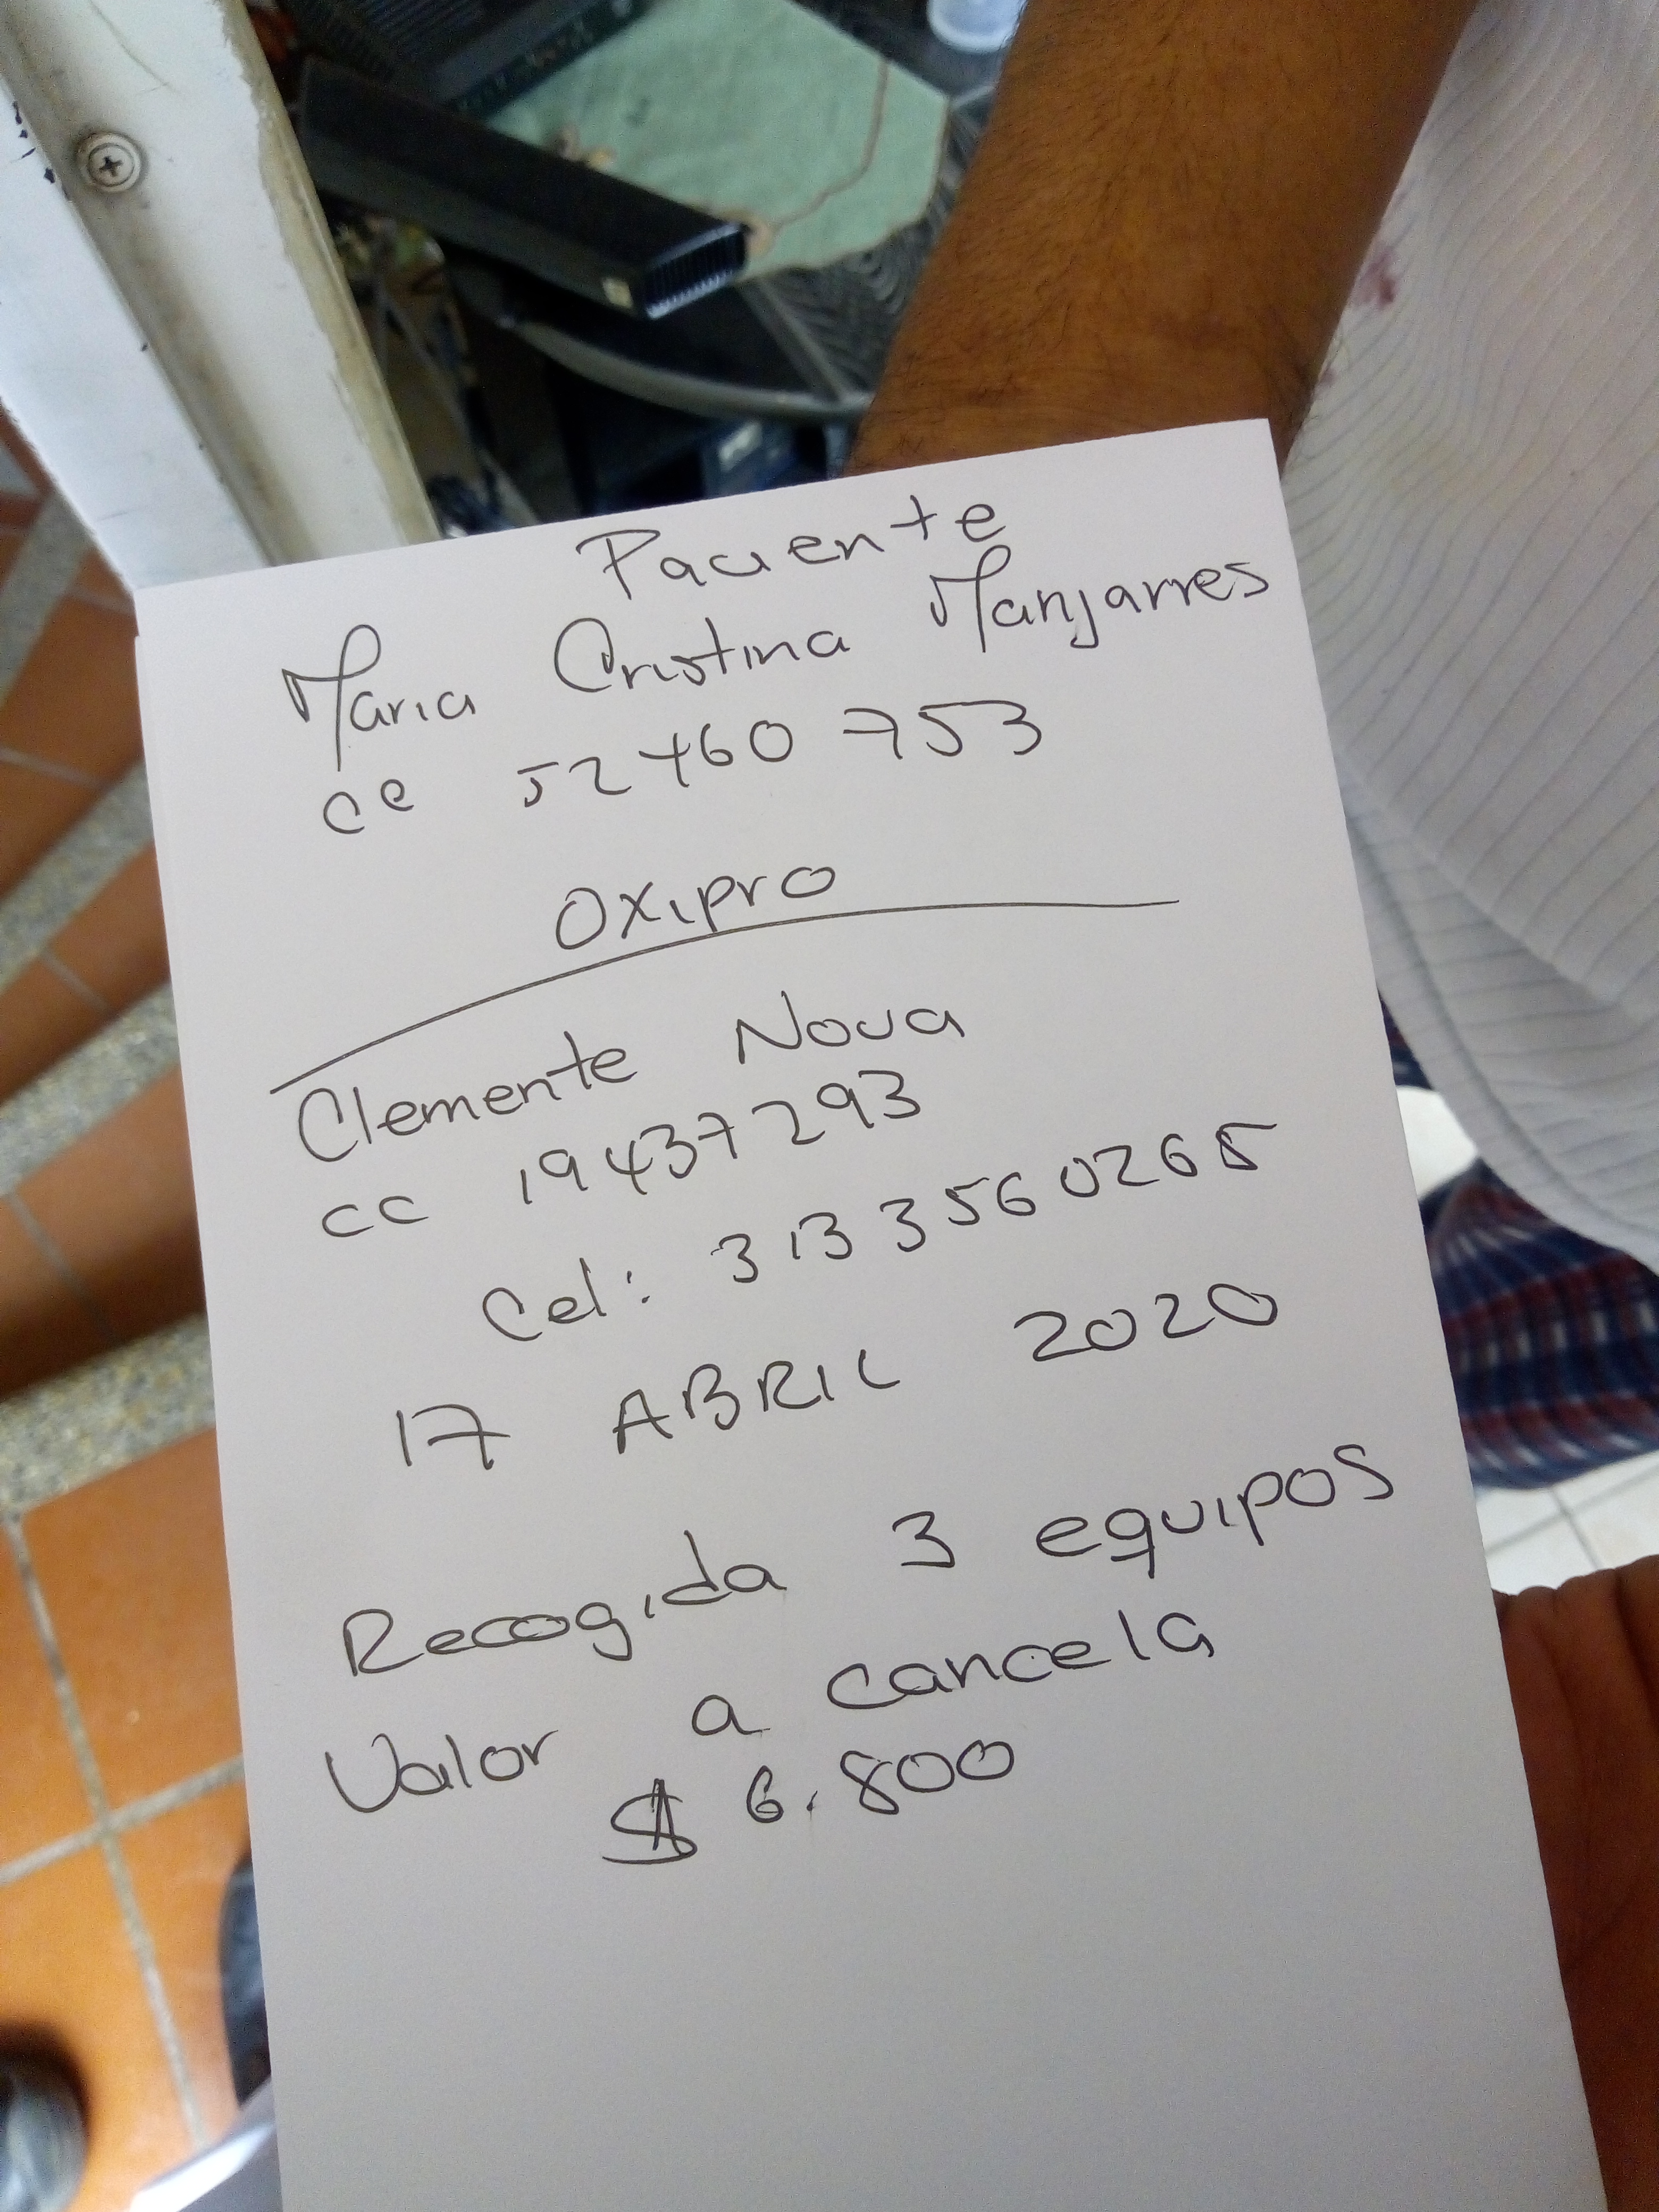 Paciente
Maria Cristina Manjarres
cc 52460 753
Oxipro
Clemente Nova
cc 19437293
Cel: 313 3560265
17 ABRIL 2020
Recogida 3 equipos
Valor a cancela
$ 6.800